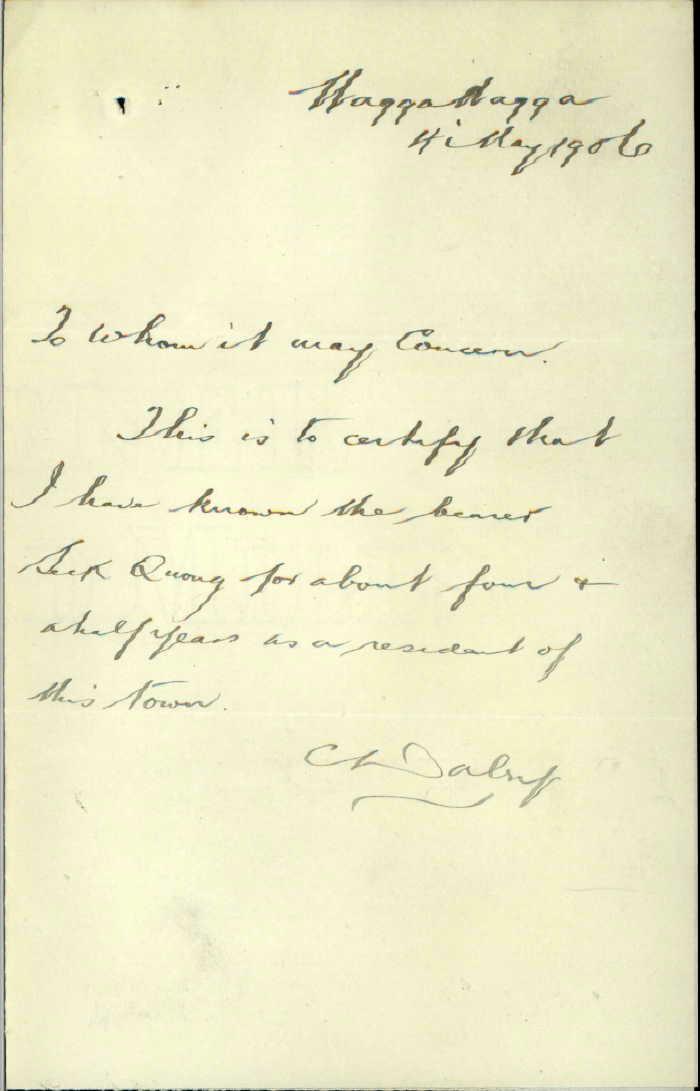 Wagga Wagga
4 May 1906
To whom it may Concern.
This is to certify that
I have known the bearer
Quong for about four &
a half years as a resident of
this town.